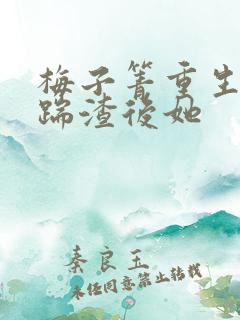 梅子箐重生
踹渣後她
秦良玉
未经同意禁止转载